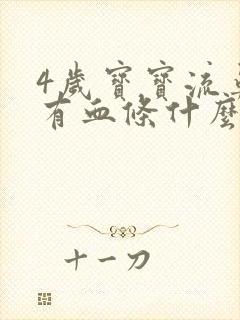 4歲寶寶流
有血條什麼
十一刀